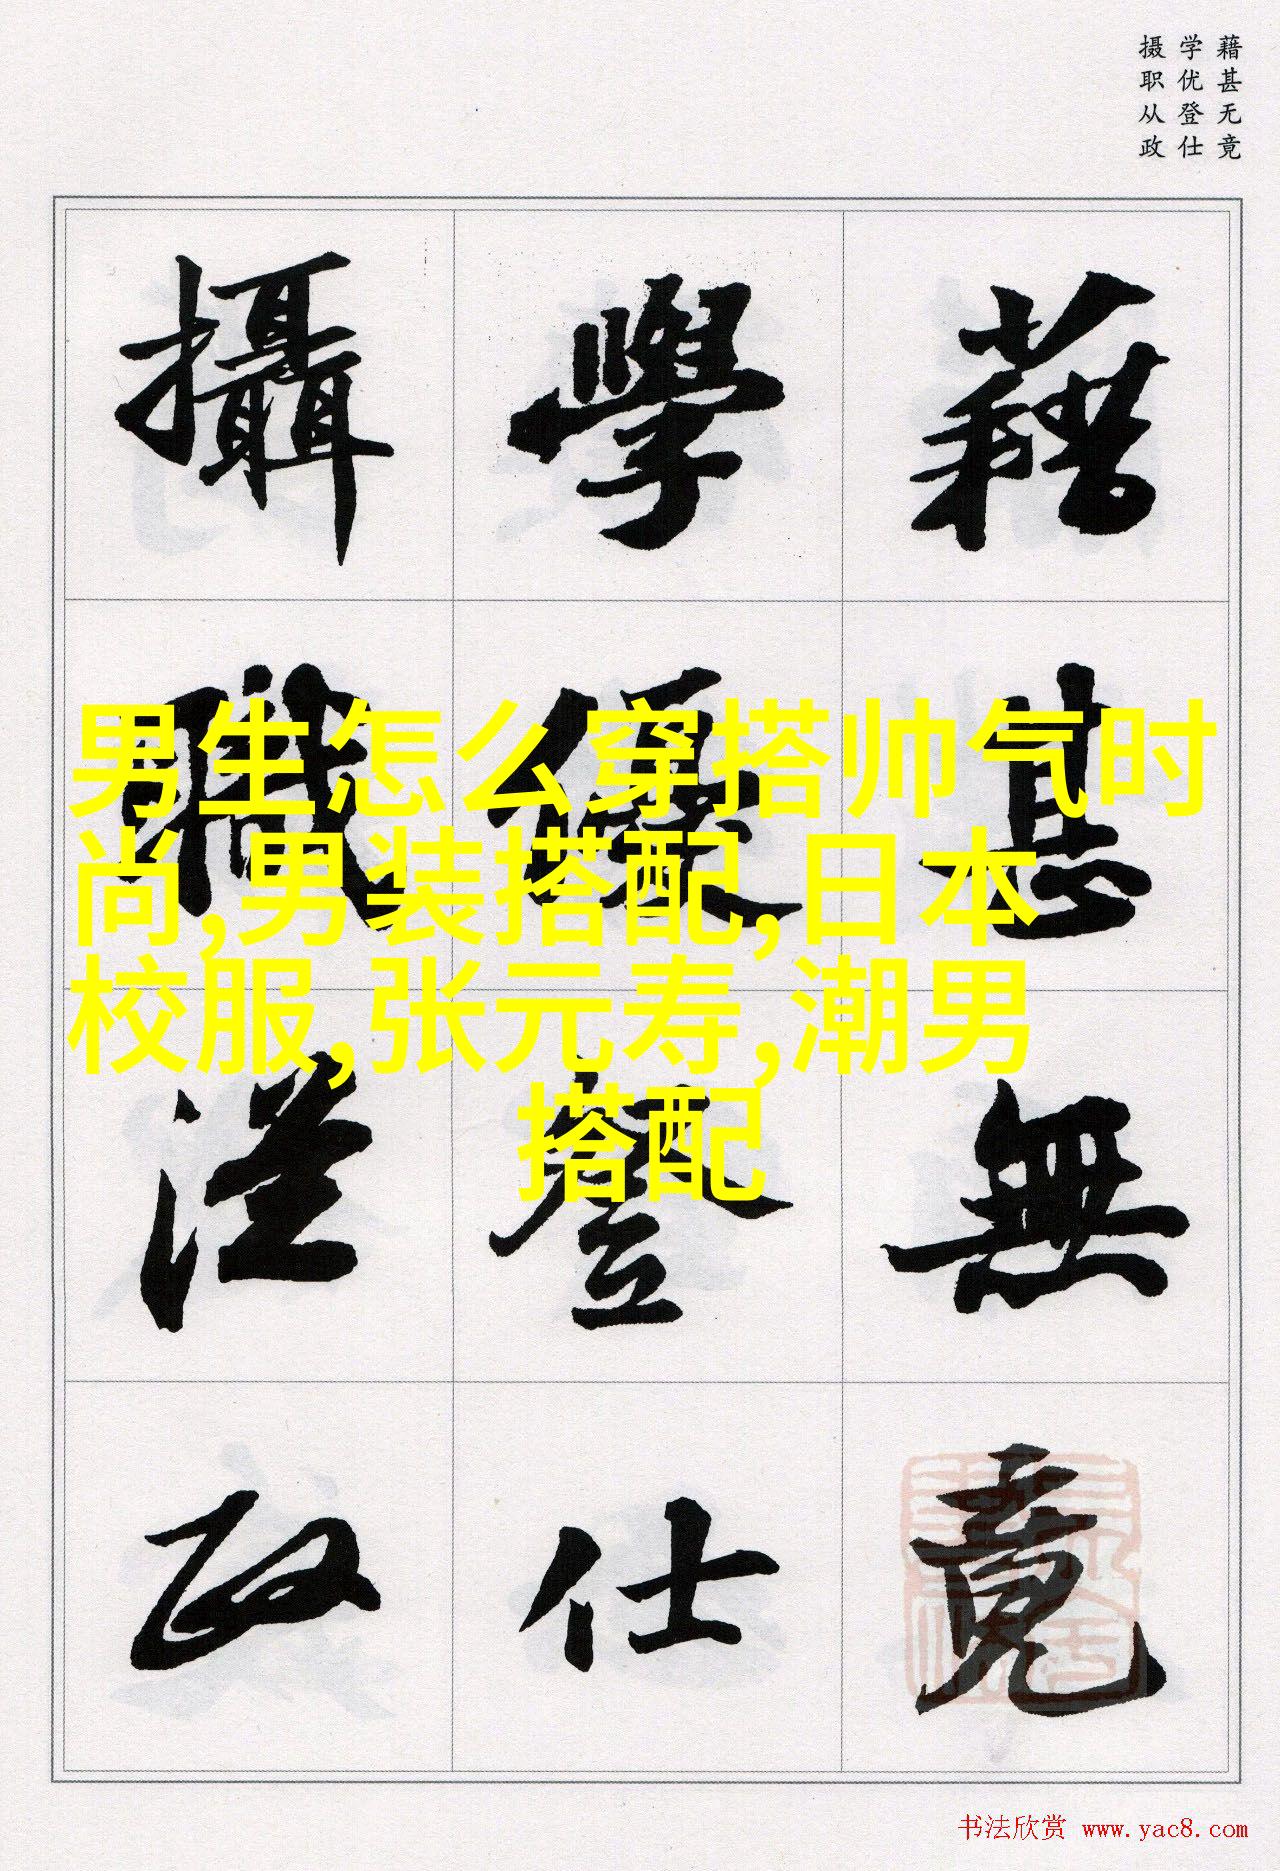 藉甚无竟
学优登仕
摄职从政
藉甚無竟
學優登仕
攝職從政
男生怎么穿搭帅气时
尚,男装搭配,日本
校服,张元寿,潮男
搭配
书法欣赏 www.yac8.com